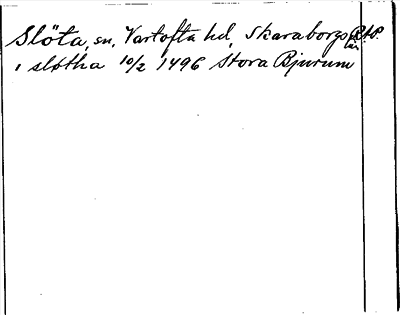 Slöta, sn, Vartofta hd, Skaraborgs län. RAP.
i sløtha 10/2 1496 Stora Bjurum